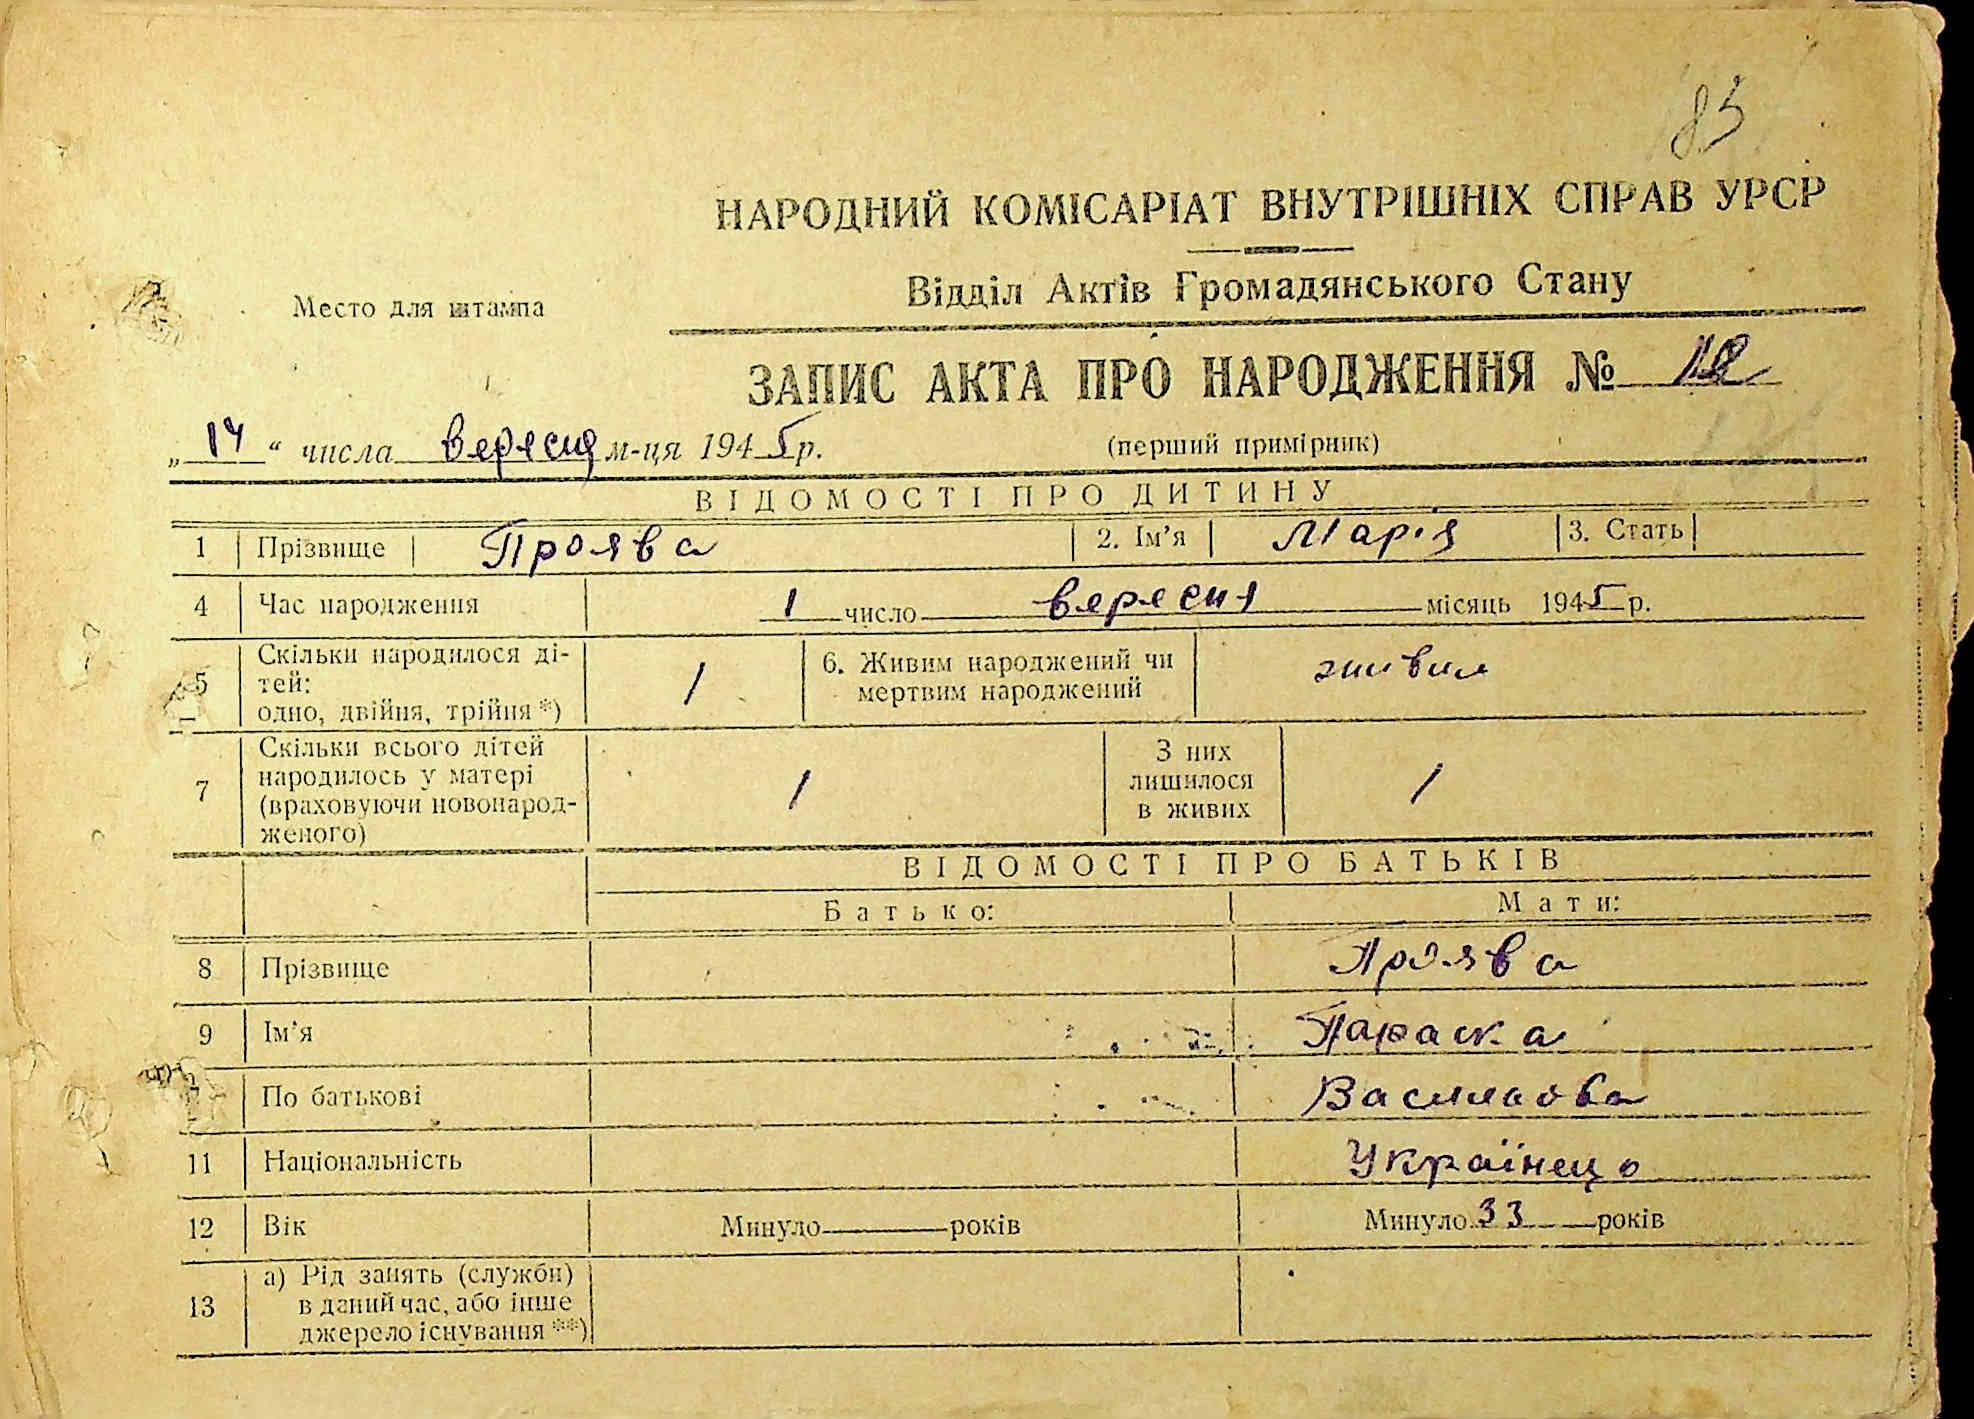 83
НАРОДНИЙ КОМІСАРІАТ ВНУТРІШНІХ СПРАВ УРСР
Место для штампа
Відділ Актів Громадянського Стану
ЗАПИС АКТА ПРО НАРОДЖЕННЯ № 12
„14“ числа вересня м-ця 1945 р. (перший примірник)
ВІДОМОСТІ ПРО ДИТИНУ
1 Прізвище Проява 2. Ім'я Марія 3. Стать
4 Час народження 1 число вересня місяць 1945 р.
5 Скільки народилося ді-
тей:
одно, двійня, трійня *) 1 6. Живим народжений чи
мертвим народжений живим
7 Скільки всього дітей
народилось у матері
(враховуючи новонарод-
женого) 1 З них
лишилося
в живих 1
ВІДОМОСТІ ПРО БАТЬКІВ
Батько: Мати:
8 Прізвище Проява
9 Ім'я Параска
По батькові
11 Національність Українець
12 Вік Минуло років Минуло 33 років
13 а) Рід занять (служби)
в даний час, або інше
джерело існування **)